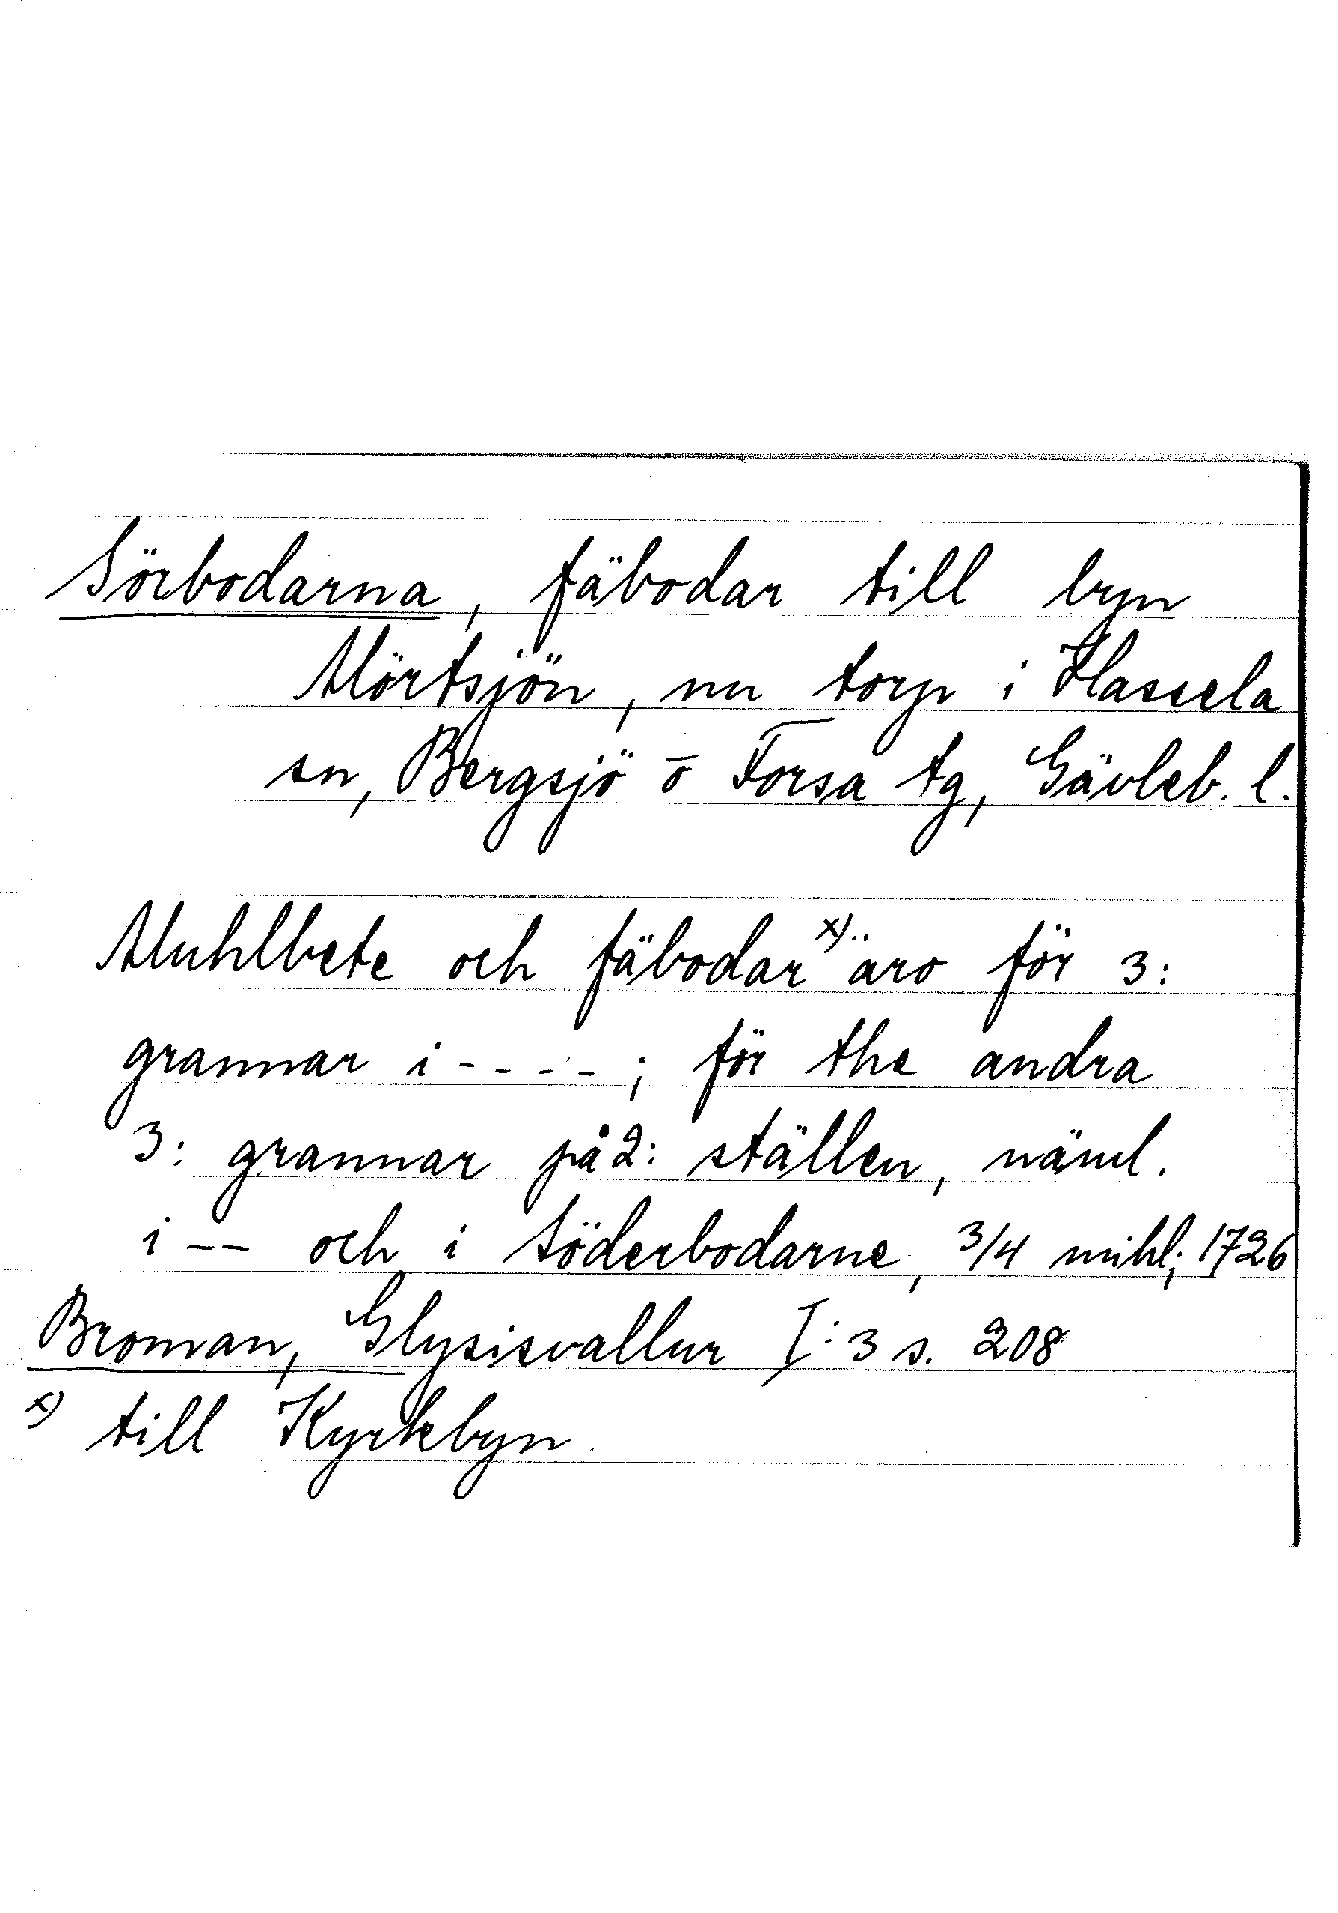 Sörbodarna, fäbodar till byn
Mörtsjön, nu torp i Hassela
sn, Bergsjö o Forsa tg, Gävleb. l.
Muhlbete och fäbodar x) äro för 3:
grannar i - - - - ; för the andra
3: grannar på 2: ställen, näml.
i -- och i Söderbodarne, 3/4 mihl; 1726
Broman, Glysisvallur I:3 s. 208
x) till Kyrkbyn.